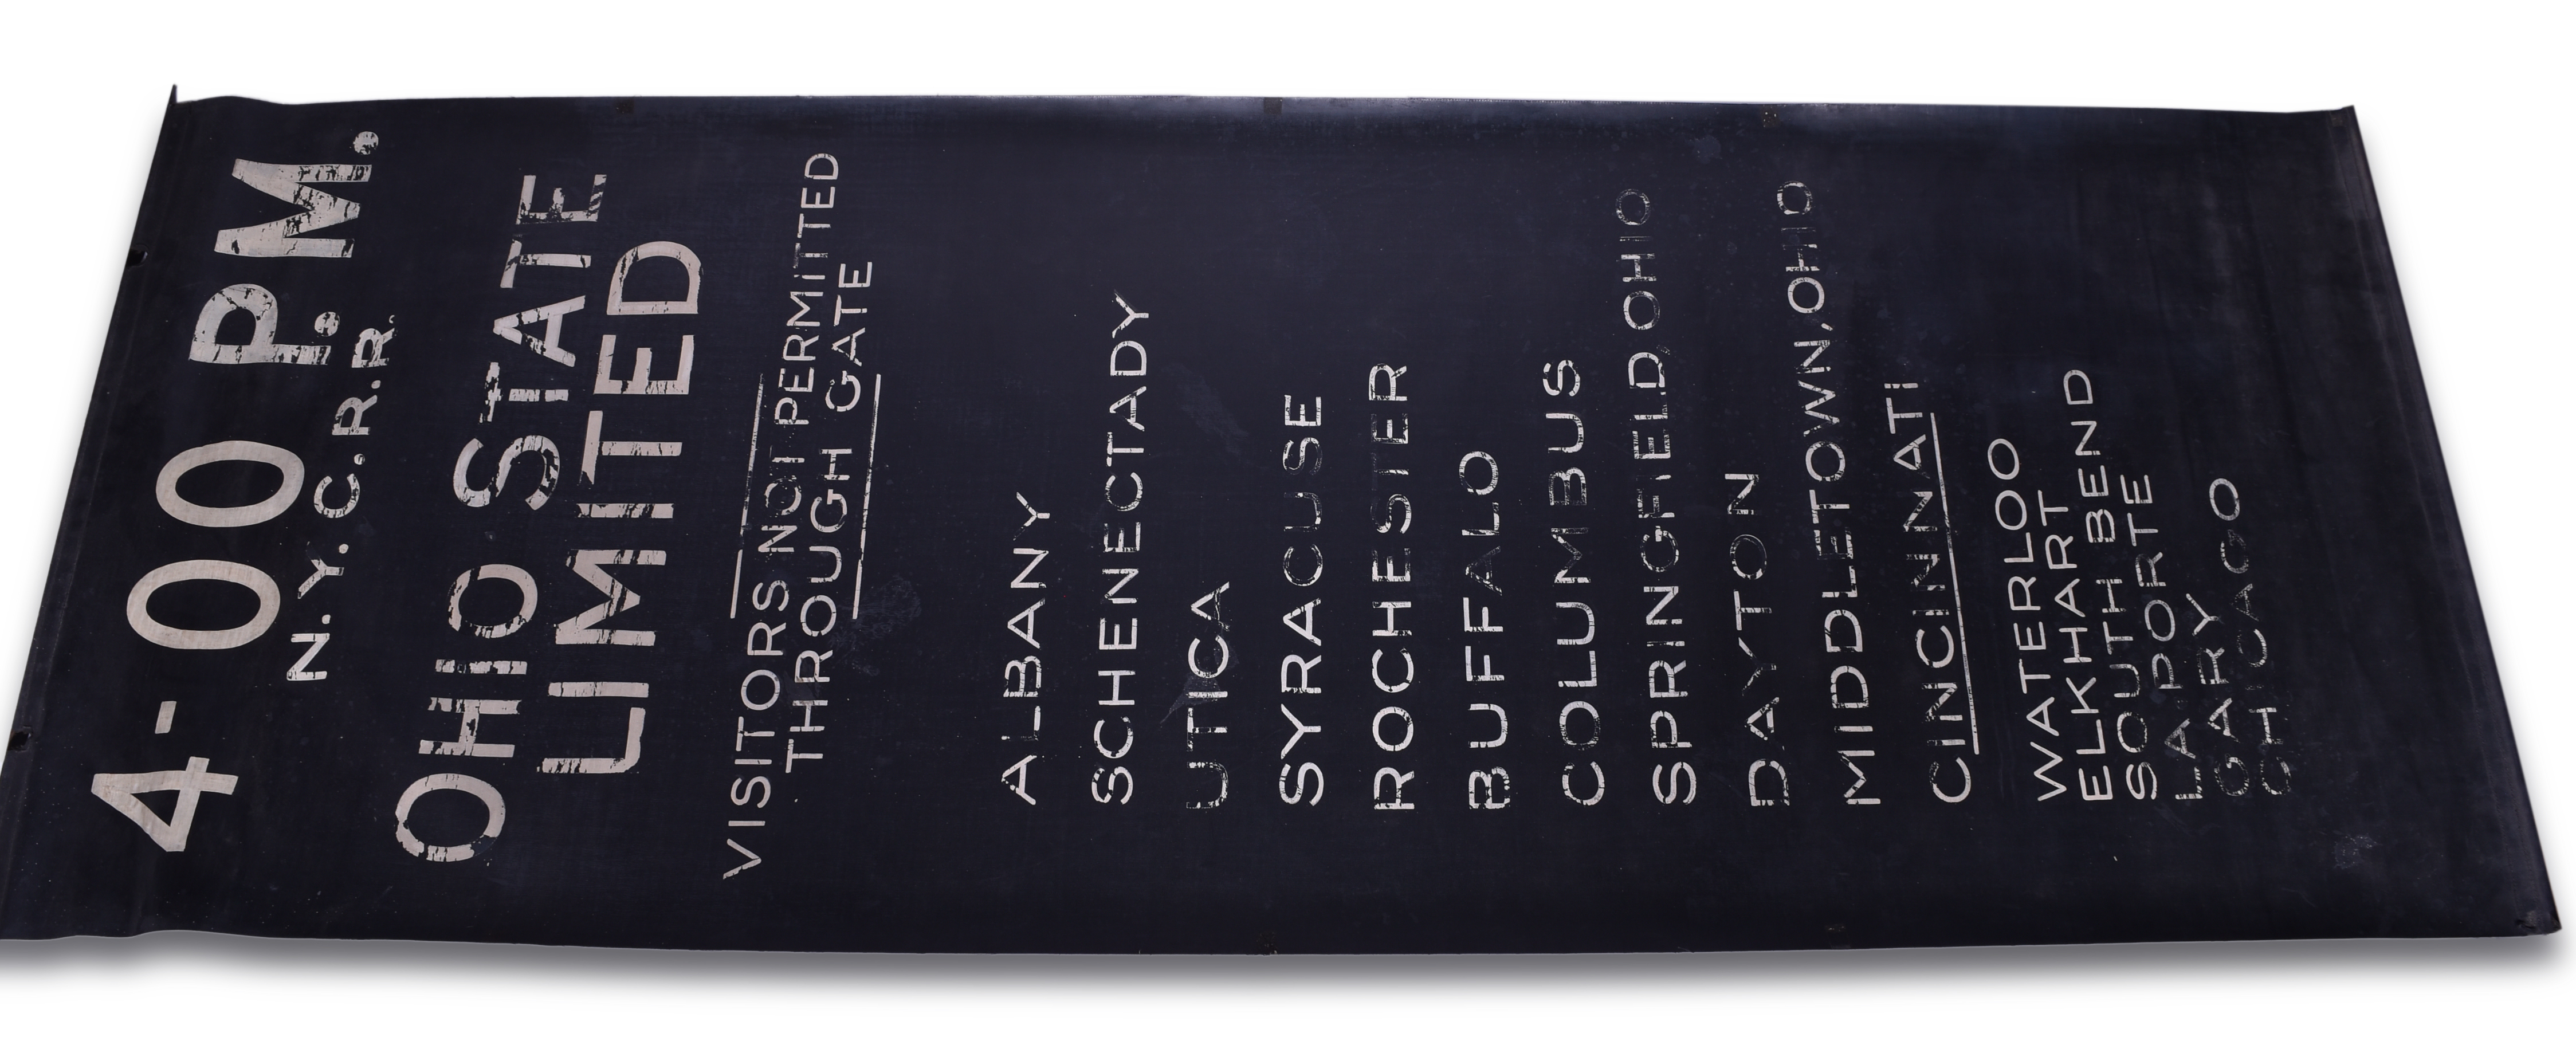 4-00 P.M.
N.Y.C.R.R.
OHIO STATE
LIMITED
VISITORS NOT PERMITTED
THROUGH GATE
ALBANY
SCHENECTADY
UTICA
SYRACUSE
ROCHESTER
BUFFALO
COLUMBUS
SPRINGFIELD, OHIO
DAYTON
MIDDLETOWN, OHIO
CINCINNATI
WATERLOO
ELKHART
SOUTH BEND
LA PORTE
GARY
CHICAGO